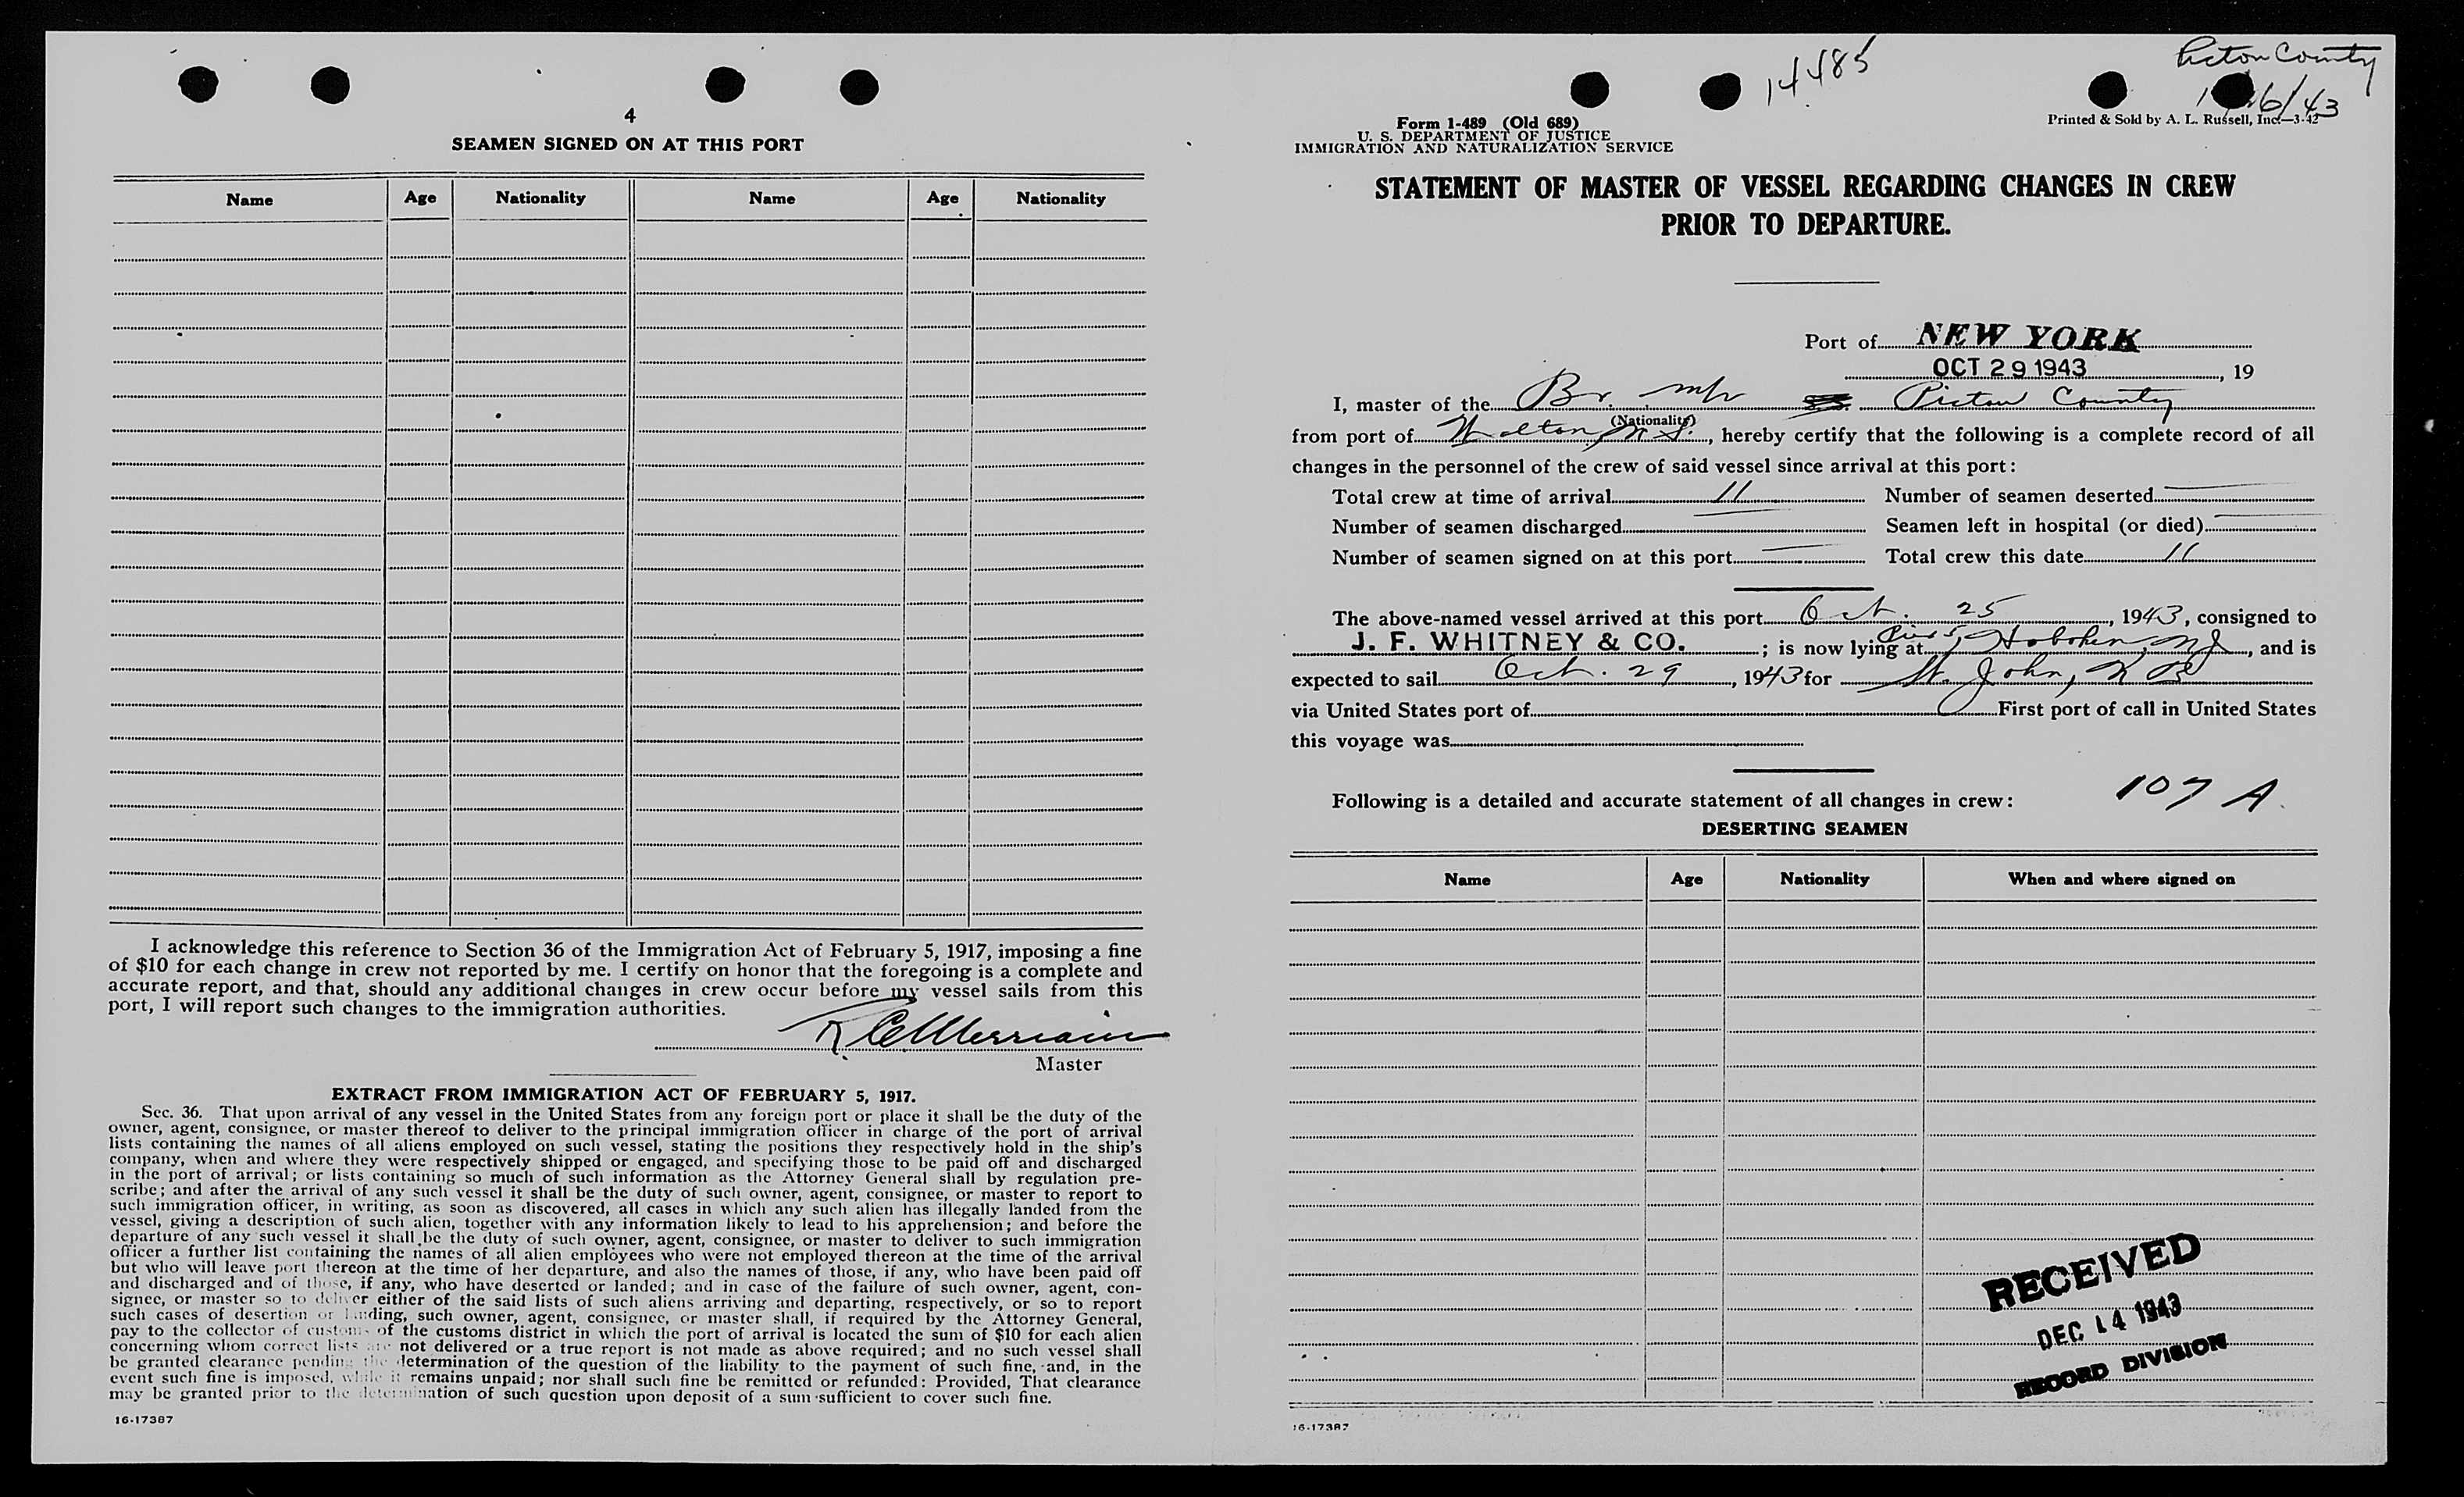 4
SEAMEN SIGNED ON AT THIS PORT
Name Age Nationality Name Age Nationality
I acknowledge this reference to Section 36 of the Immigration Act of February 5, 1917, imposing a fine
of $10 for each change in crew not reported by me. I certify on honor that the foregoing is a complete and
accurate report, and that, should any additional changes in crew occur before my vessel sails from this
port, I will report such changes to the immigration authorities.
Master
EXTRACT FROM IMMIGRATION ACT OF FEBRUARY 5, 1917.
Sec. 36. That upon arrival of any vessel in the United States from any foreign port or place it shall be the duty of the
owner, agent, consignee, or master thereof to deliver to the principal immigration officer in charge of the port of arrival
lists containing the names of all aliens employed on such vessel, stating the positions they respectively hold in the ship's
company, when and where they were respectively shipped or engaged, and specifying those to be paid off and discharged
in the port of arrival; or lists containing so much of such information as the Attorney General shall by regulation pre-
scribe; and after the arrival of any such vessel it shall be the duty of such owner, agent, consignee, or master to report to
such immigration officer, in writing, as soon as discovered, all cases in which any such alien has illegally landed from the
vessel, giving a description of such alien, together with any information likely to lead to his apprehension; and before the
departure of any such vessel it shall be the duty of such owner, agent, consignee, or master to deliver to such immigration
officer a further list containing the names of all alien employees who were not employed thereon at the time of the arrival
but who will leave port thereon at the time of her departure, and also the names of those, if any, who have been paid off
and discharged and of those, if any, who have deserted or landed; and in case of the failure of such owner, agent, con-
signee, or master so to deliver either of the said lists of such aliens arriving and departing, respectively, or so to report
such cases of desertion or landing, such owner, agent, consignee, or master shall, if required by the Attorney General,
pay to the collector of customs of the customs district in which the port of arrival is located the sum of $10 for each alien
concerning whom correct lists are not delivered or a true report is not made as above required; and no such vessel shall
be granted clearance pending the determination of the question of the liability to the payment of such fine, and, in the
event such fine is imposed, while it remains unpaid; nor shall such fine be remitted or refunded: Provided, That clearance
may be granted prior to the determination of such question upon deposit of a sum sufficient to cover such fine.
16-17387
14485
Picton County
Form 1-489 (Old 689)
U. S. DEPARTMENT OF JUSTICE
IMMIGRATION AND NATURALIZATION SERVICE
Printed & Sold by A. L. Russell, Inc.—3-42
STATEMENT OF MASTER OF VESSEL REGARDING CHANGES IN CREW
PRIOR TO DEPARTURE.
Port of NEW YORK
OCT 29 1943, 19
I, master of the Br. M/v Pictou County
(Nationality)
from port of Walton, N S., hereby certify that the following is a complete record of all
changes in the personnel of the crew of said vessel since arrival at this port:
Total crew at time of arrival 11 Number of seamen deserted —
Number of seamen discharged — Seamen left in hospital (or died) —
Number of seamen signed on at this port — Total crew this date 11
The above-named vessel arrived at this port Oct. 25, 1943, consigned to
J. F. WHITNEY & CO.; is now lying at Pier 5, Hoboken, NJ, and is
expected to sail Oct. 29, 1943 for St. John, N B
via United States port of First port of call in United States
this voyage was
Following is a detailed and accurate statement of all changes in crew:
107 A
DESERTING SEAMEN
Name Age Nationality When and where signed on
RECEIVED
DEC 14 1943
RECORD DIVISION
16-17387